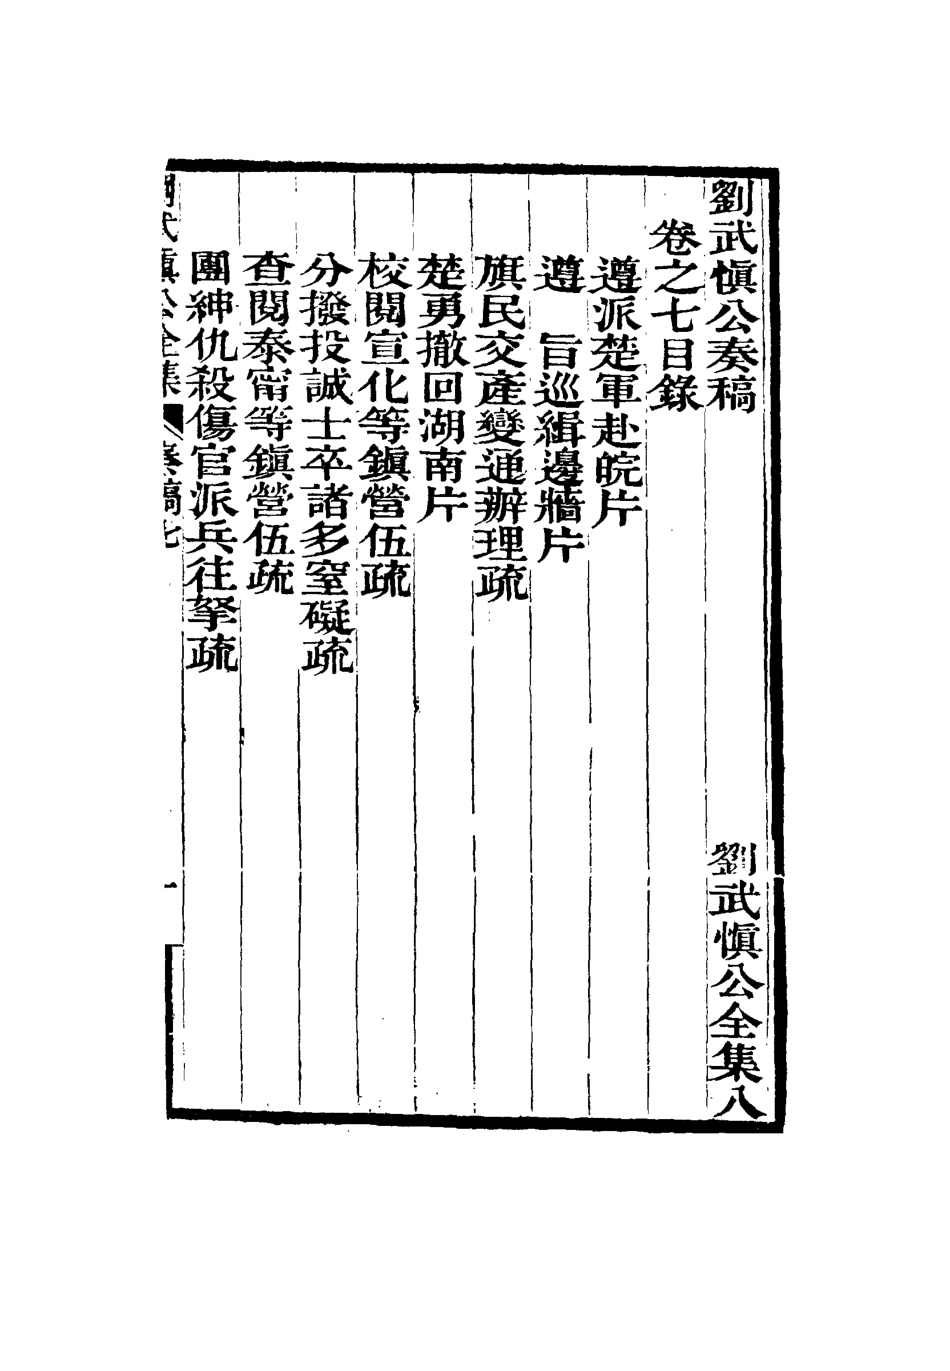 劉武愼公奏稿 劉武愼公全集八
卷之七目錄
遵派楚軍赴皖片
遵 旨巡緝邊牆片
旗民交產變通辦理疏
楚勇撤回湖南片
校閱宣化等鎭營伍疏
分撥投誠士卒諸多窒礙疏
查閱泰甯等鎭營伍疏
團紳仇殺傷官派兵往拏疏
劉武愼公全集 奏稿七 一